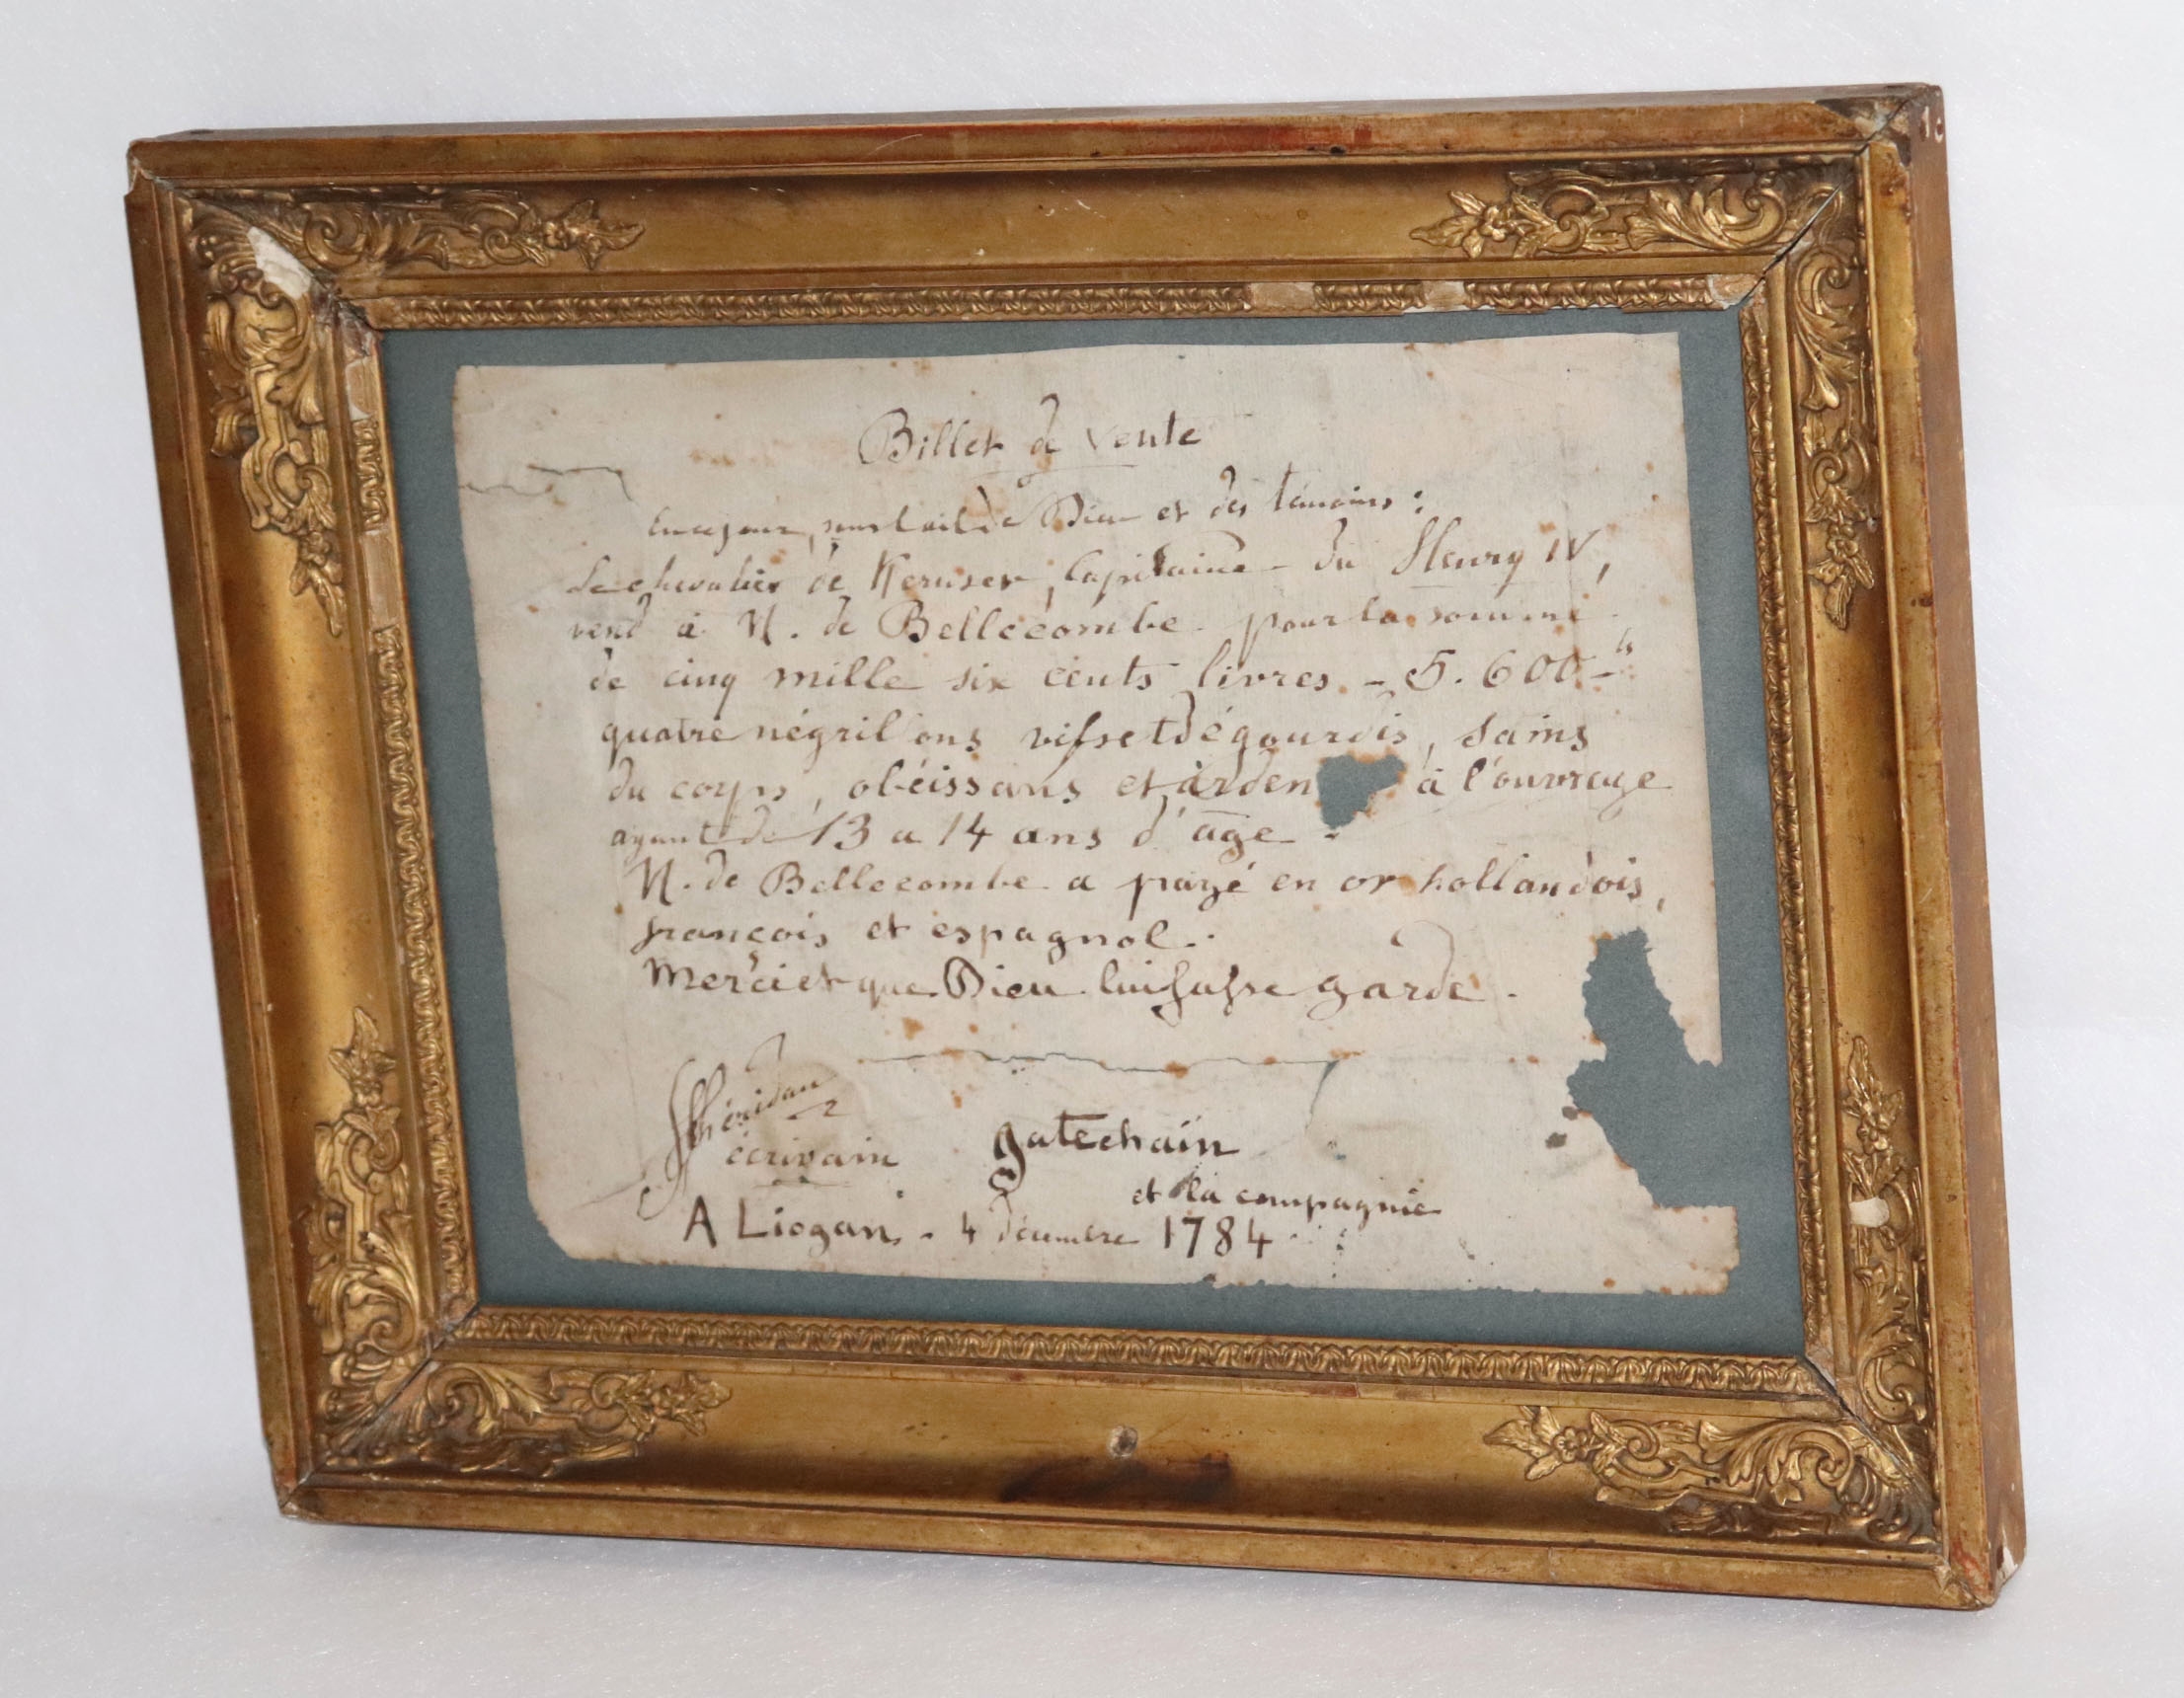 Billet de vente
En ce jour, sous l'œil de Dieu et des témoins :
Le chevalier de Keruser, Capitaine du Henry IV,
vend à M. de Bellecombe pour la somme
de cinq mille six cents livres - 5.600 - "
quatre négrillons vifs et dégourdis, sains
du corps, obéissans et arden à l'ouvrage
ayant de 13 a 14 ans d'âge.
M. de Bellecombe a payé en or hollandois,
françois et espagnol.
Merci et que Dieu lui fasse garde.
Shéridan
écrivain
gatechain
et la compagnie
A Liogan. - 4 décembre 1784